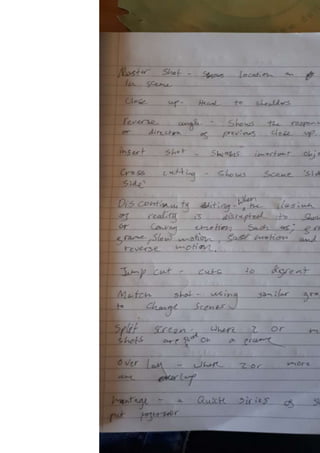 Master Shot - Shows location on
in scene
Close up - Head to shoulders
Reverse angle - Shows the respon
or direction of previous close up.
Insert shot - Shows important obje
Cross cutting - Shows scene 'side
side'
Discontinuity editing - When the illusion
of reality is disrupted to show
or convey emotion such as; gr
frame, Slow motion, fast motion and
reverse motion.
Jump cut - cuts to different
Match shot - using similar gra
to change scenes
Split screen - Where 2 or m
shots are on a frame
Over lay - where 2 or more
are overlap
Montage - a Quick siries of s
put together